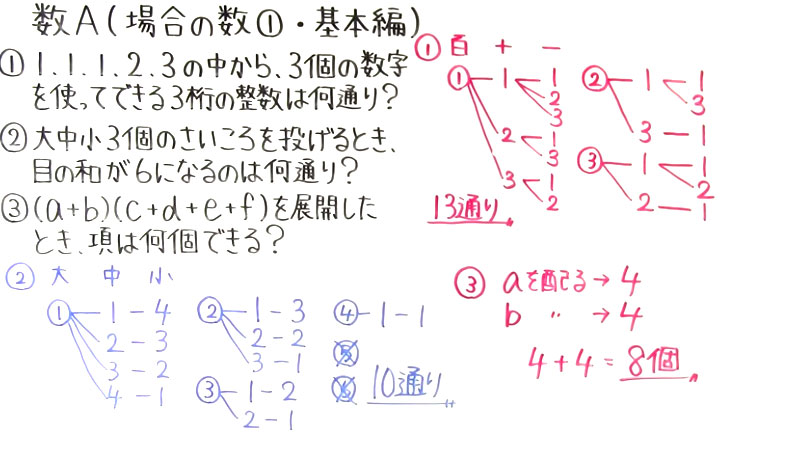 数A(場合の数①・基本編)
① 1.1.1.2.3の中から、3個の数字
を使ってできる3桁の整数は何通り？
② 大中小3個のさいころを投げるとき、
目の和が6になるのは何通り？
③ (a+b)(c+d+e+f)を展開した
とき、項は何個できる？
① 百 十 一
① 1 1
2
3
2 1
3
3 1
2
② 1 1
3
3 1
③ 1 1
2
2 1
13通り
② 大 中 小
① 1 - 4
2 - 3
3 - 2
4 - 1
② 1 - 3
2 - 2
3 - 1
③ 1 - 2
2 - 1
④ - 1 - 1
⑤
⑥
10通り
③ aを配る → 4
b 〃 → 4
4 + 4 = 8個